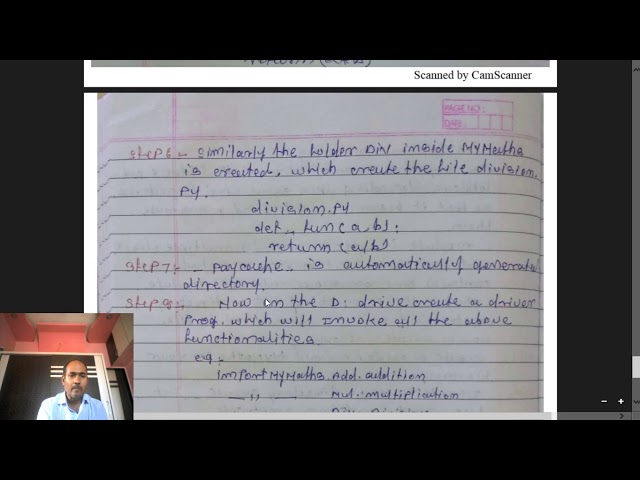 Scanned by CamScanner
PAGE NO:
DATE:
Step 6:- Similarly the folder Div inside MyMaths
is created, which create the file division.
py.
division.py
def fun(a,b):
return(a/b)
Step 7:- - paycache is automatically generated
directory.
Step 8:- Now on the D: drive create a driver
prog. which will invoke all the above
functionalities.
eg:-
import MyMaths. Add. addition
—〃— Mul. multiplication